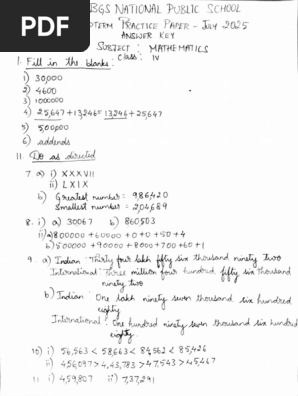 PDF
BGS NATIONAL PUBLIC SCHOOL
PRACTICE PAPER - JULY 2025
ANSWER KEY
SUBJECT : MATHEMATICS
Class : IV
I. Fill in the blanks :
1) 30,000
2) 4600
3) 1000000
4) 25,647 + 13,246 = 13,246 + 25,647
5) 5,00,000
6) addends
II. Do as directed
7. a) i) XXXVII
ii) LXIX
b) Greatest number = 986420
Smallest number = 204689
8. i) a) 30067 b) 860503
ii) a) 800000 + 60000 + 0 + 0 + 50 + 4
b) 500000 + 90000 + 8000 + 700 + 60 + 1
9. a) Indian : Thirty four lakh fifty six thousand ninety two
International : Three million four hundred fifty six thousand
ninety two
b) Indian : One lakh ninety seven thousand six hundred
eighty
International : One hundred ninety seven thousand six hundred
eighty
10) i) 56,563 < 58,663 < 84,562 < 85,426
ii) 456097 > 4,43,783 > 47,543 > 45,467
11. i) 4,59,807 ii) 7,37,291